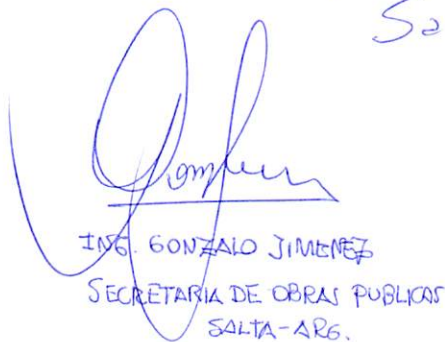 Sa
ING. GONZALO JIMENEZ
SECRETARIA DE OBRAS PUBLICAS
SALTA-ARG.